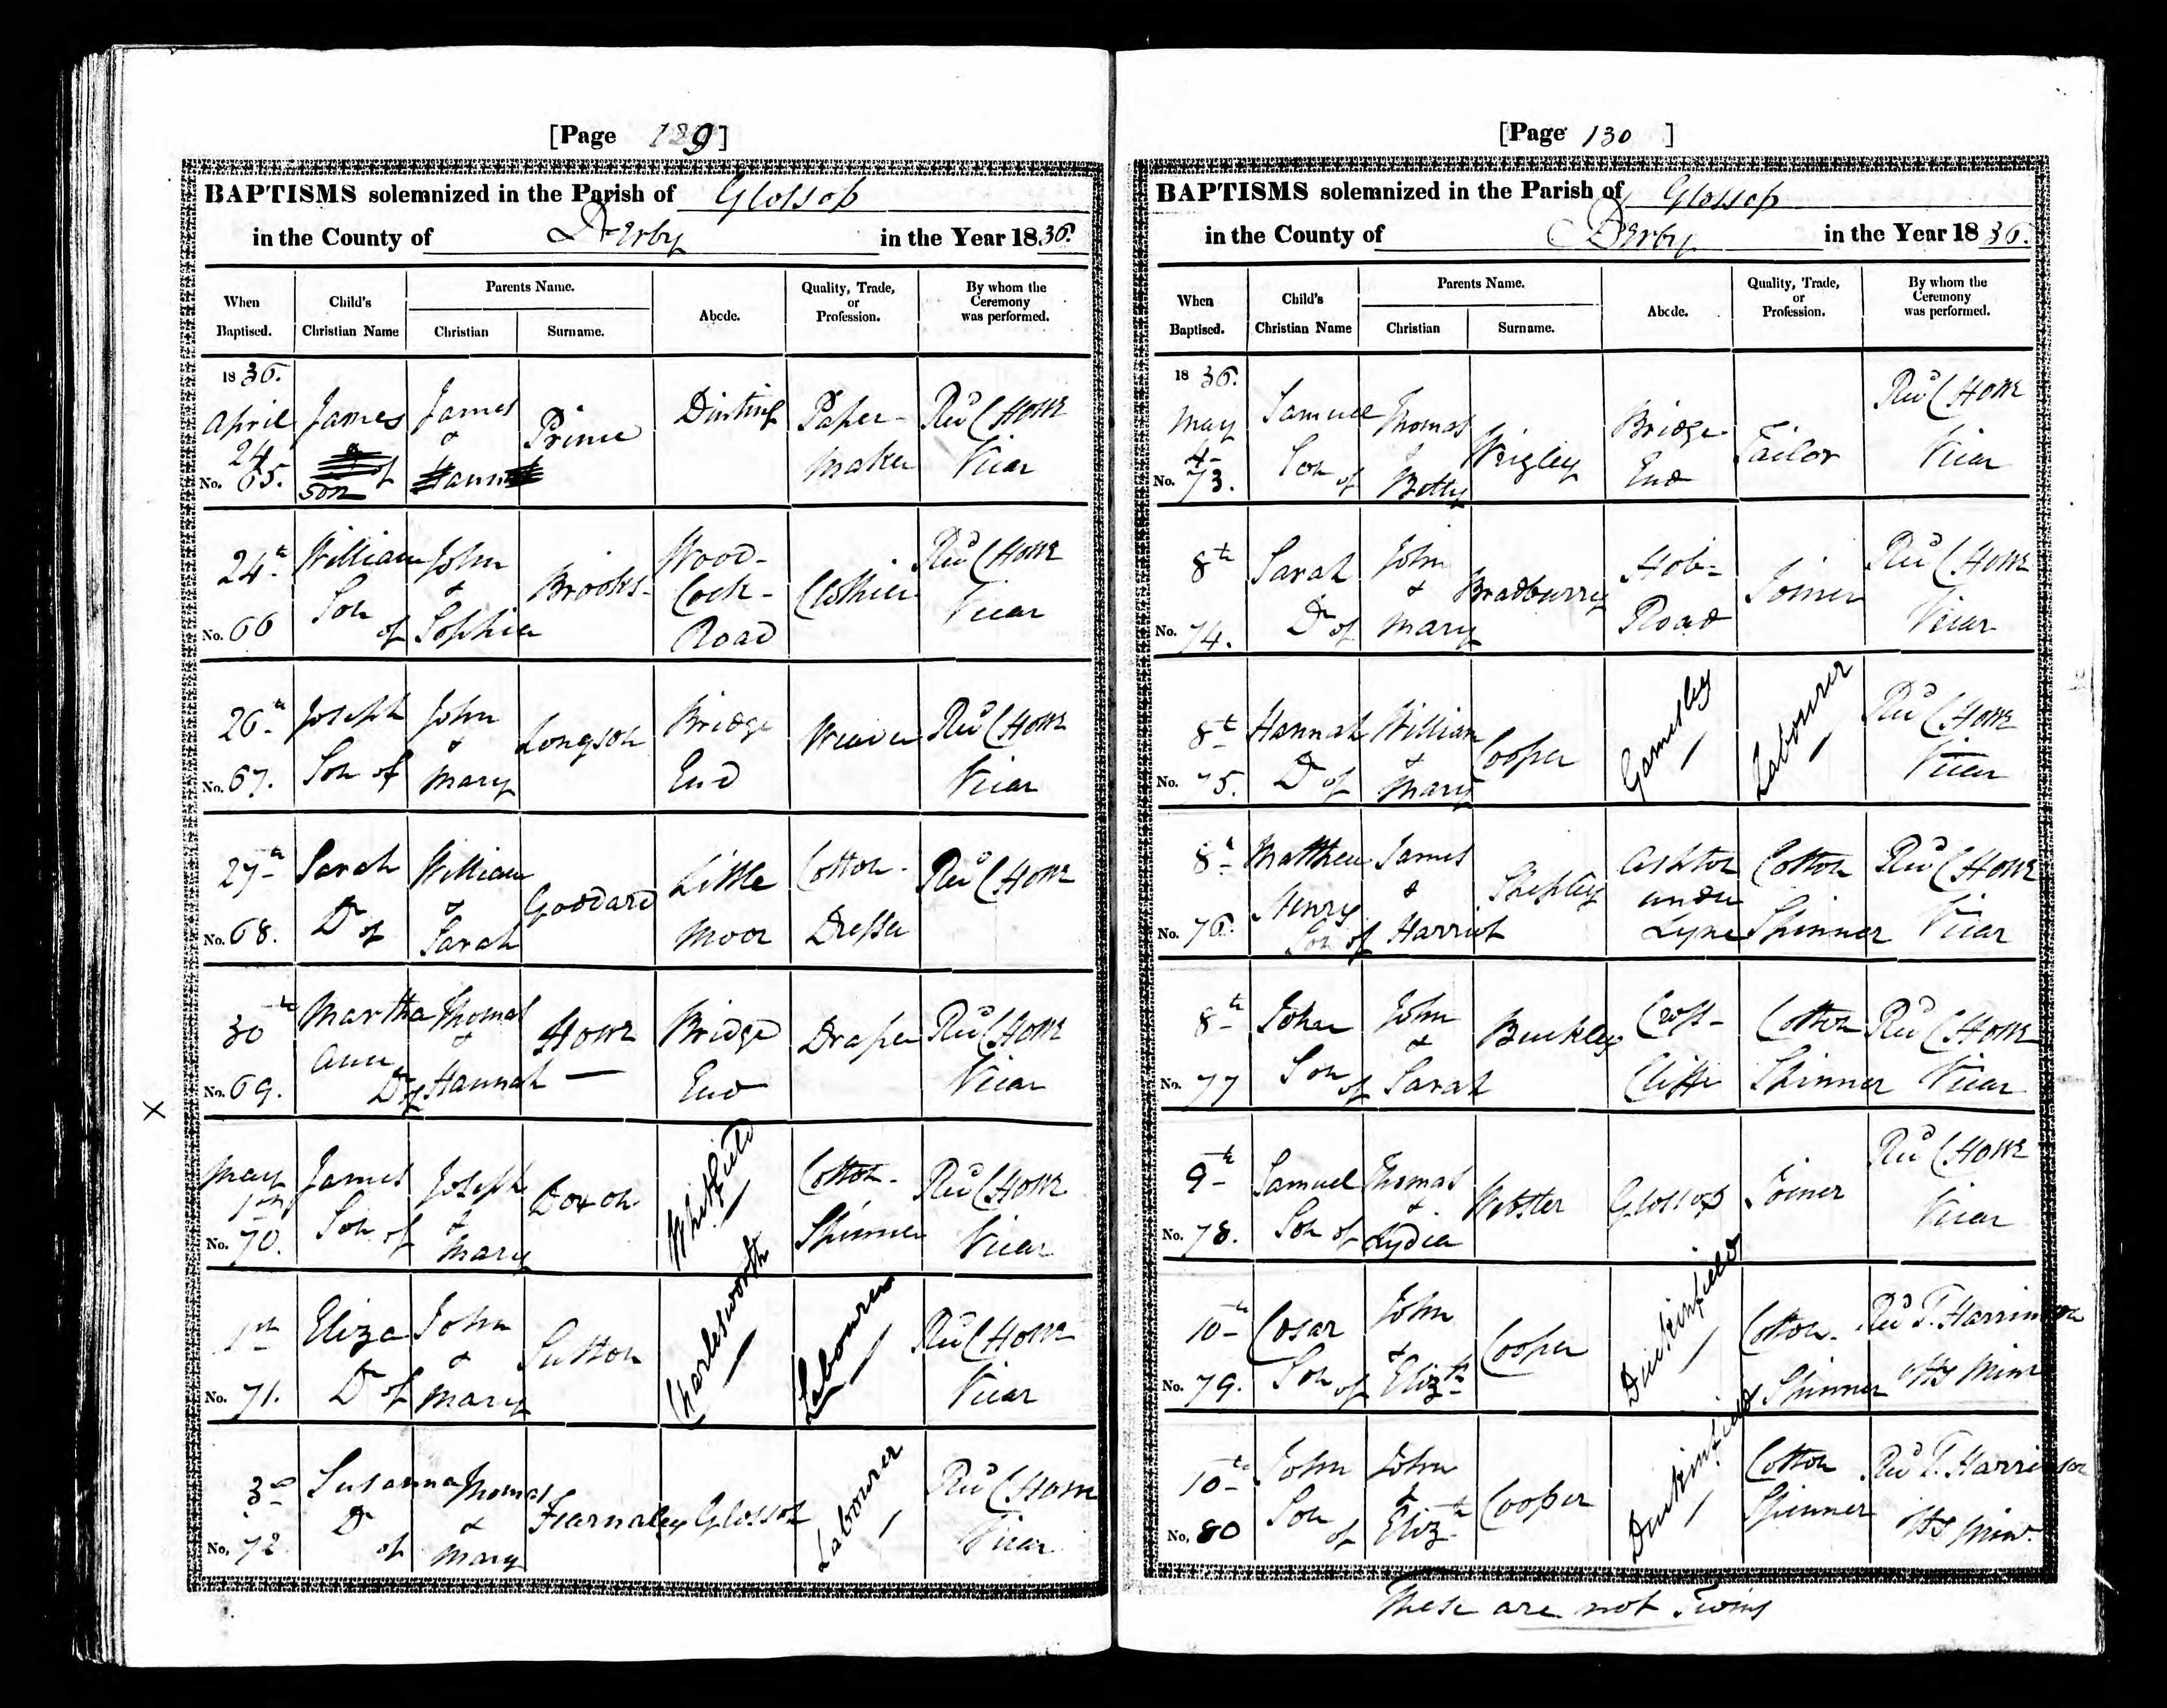 [Page 129]
BAPTISMS solemnized in the Parish of Glossop
in the County of Derby in the Year 1836.
When Baptised.
Child's Christian Name
Parents Name.
Christian
Surname.
Abode.
Quality, Trade, or Profession.
By whom the Ceremony was performed.
1836.
April James James Prince Dinting Paper- Revd C Howe
24 & maker Vicar
No. 65. son of
24th William John Brooks- Wood- Clothier Revd C Howe
Son & Cock- Vicar
No. 66 of Sophia Road
26th Joseph John Longson Bridge Weaver Revd C Howe
No. 67. Son of & Mary End Vicar
27th Sarah William Goddard Little Cotton- Revd C Howe
No. 68. Dr of & Sarah Moor Dresser
30th Martha Thomas Howe Bridge Draper Revd C Howe
No. 69. Ann Dr of & Hannah — End Vicar
X
May James Joseph Doxon Whitfield Cotton- Revd C Howe
1st Son of &
No. 70. Mary Spinner Vicar
1st Eliza John Sutton Charlesworth Labourer Revd C Howe
No. 71. Dr of & Mary Vicar
3d Susanna Thomas Fearnaley Glossop Labourer Revd C Howe
No. 72 Dr of & Mary Vicar
[Page 130 ]
BAPTISMS solemnized in the Parish of Glossop
in the County of Derby in the Year 1836.
When Baptised.
Child's Christian Name
Parents Name.
Christian
Surname.
Abode.
Quality, Trade, or Profession.
By whom the Ceremony was performed.
1836.
May Samuel Thomas Wrigley Bridge Tailor Revd C Howe
4- Son of & Betty End Vicar
No. 73.
8th Sarah John Bradburry Hob- Joiner Revd C Howe
No. 74. Dr of & Mary Road Vicar
8th Hannah William Cooper Gamesley Labourer Revd C Howe
No. 75. Dr of & Mary Vicar
8th Matthew James Shepley Ashton Cotton Revd C Howe
Henry & under
No. 76. Son of Harriot Lyne Spinner Vicar
8th John John Buckley Cross- Cotton Revd C Howe
No. 77 Son of & Sarah Cliffe Spinner Vicar
9th Samuel Thomas Webster Glossop Joiner Revd C Howe
No. 78. Son of & Lydia Vicar
10th Cosar John Cooper Dunkinfield Cotton- Revd T. Harrinson
No. 79. Son of & Elizth Spinner Offg Minr
10th John John Cooper Dunkinfield Cotton Revd T. Harrinson
No. 80 Son of & Elizth Spinner Offg Minr.
These are not Twins